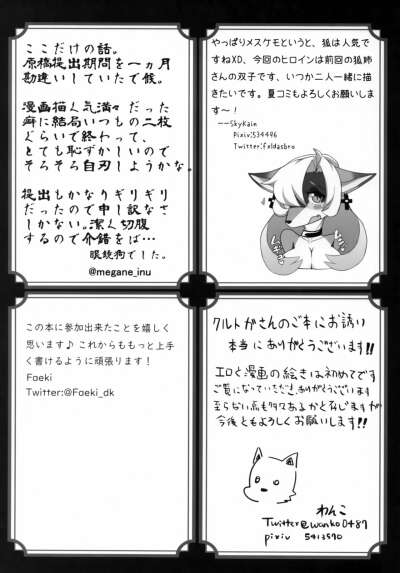 ここだけの話。
原稿提出期間を一ヵ月
勘違いしていたで候。
漫画描く気満々だった
癖に結局いつもの二枚
ぐらいで終わって、
とても恥ずかしいので
そろそろ自刃しようかな。
提出もかなりギリギリ
だったので申し訳なさ
しかない。潔く切腹
するので介錯をば…
眼鏡狗でした。
@megane_inu
やっぱりメスケモというと、狐は人気で
すねXD、今回のヒロインは前回の狐姉
さんの双子です、いつか二人一緒に描
きたいです。夏コミもよろしくお願いしま
す～！
--SkyKain
Pixiv:534496
Twitter:Foldasbro
この本に参加出来たことを嬉しく
思います♪ これからももっと上手
く書けるように頑張ります！
Faeki
Twitter:@Faeki_dk
クルトガさんのご本にお誘い
本当にありがとうございます!!
エロと漫画の絵きは初めてです
ご覧になっていただき、ありがとうございます
至らない点も多々あるかと存じますが
今後ともよろしくお願いします!!
わんこ
Twitter@wanko0487
pixiv 5413570